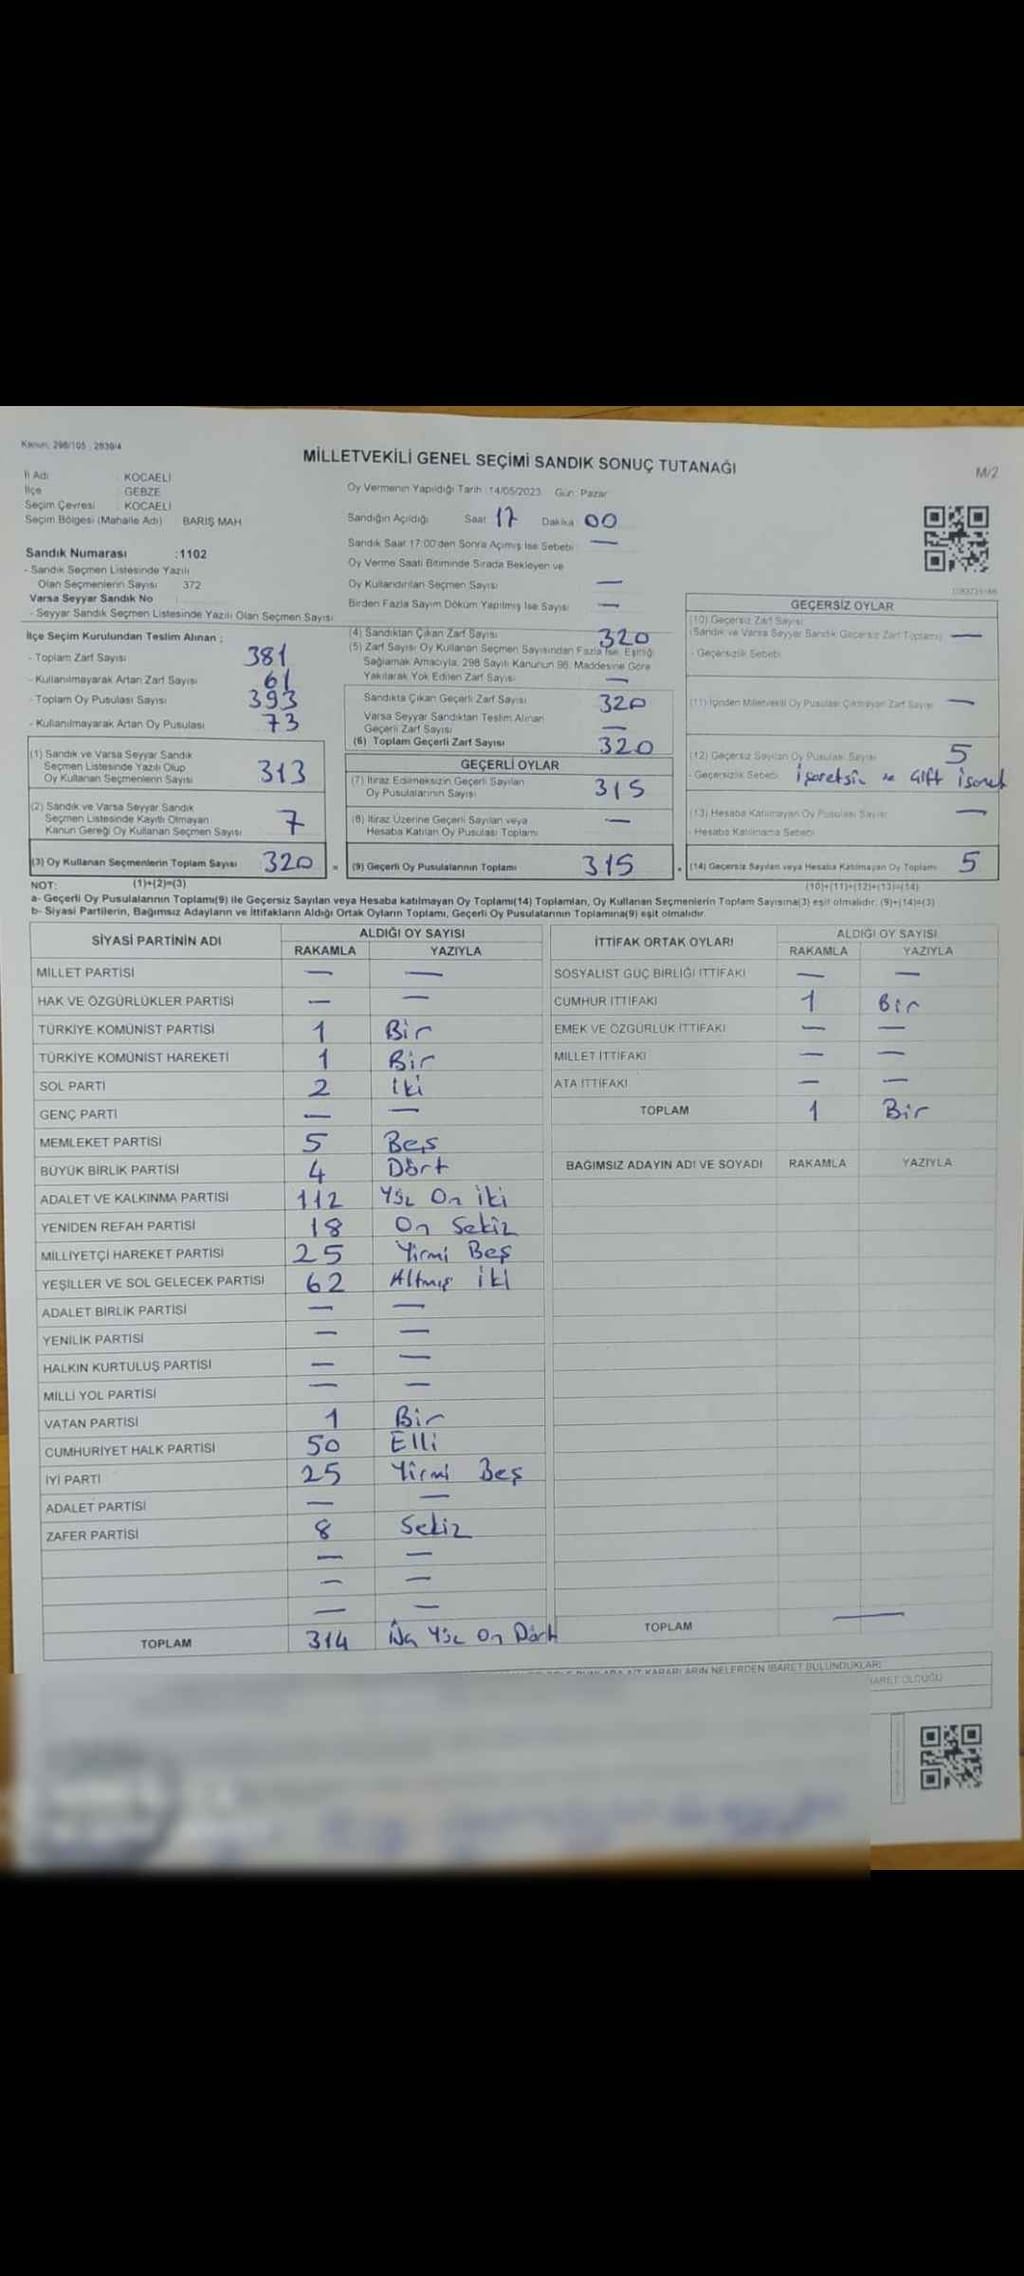 Kanun: 298/105 - 2839/4
MİLLETVEKİLİ GENEL SEÇİMİ SANDIK SONUÇ TUTANAĞI
M/2
İl Adı : KOCAELİ
İlçe : GEBZE
Seçim Çevresi : KOCAELİ
Seçim Bölgesi (Mahalle Adı) BARIŞ MAH
Sandık Numarası :1102
- Sandık Seçmen Listesinde Yazılı
Olan Seçmenlerin Sayısı 372
Varsa Seyyar Sandık No
- Seyyar Sandık Seçmen Listesinde Yazılı Olan Seçmen Sayısı
Oy Vermenin Yapıldığı Tarih : 14/05/2023 Gün: Pazar
Sandığın Açıldığı Saat 17 Dakika 00
Sandık Saat 17:00'den Sonra Açımış İse Sebebi —
Oy Verme Saati Bitiminde Sırada Bekleyen ve
Oy Kullandırılan Seçmen Sayısı —
Birden Fazla Sayım Döküm Yapılmış İse Sayısı —
İlçe Seçim Kurulundan Teslim Alınan ;
- Toplam Zarf Sayısı 381
- Kullanılmayarak Artan Zarf Sayısı 61
- Toplam Oy Pusulası Sayısı 393
- Kullanılmayarak Artan Oy Pusulası 73
(1) Sandık ve Varsa Seyyar Sandık
Seçmen Listesinde Yazılı Olup
Oy Kullanan Seçmenlerin Sayısı 313
(2) Sandık ve Varsa Seyyar Sandık
Seçmen Listesinde Kayıtlı Olmayan
Kanun Gereği Oy Kullanan Seçmen Sayısı 7
(3) Oy Kullanan Seçmenlerin Toplam Sayısı 320 =
(1)+(2)=(3)
(4) Sandıktan Çıkan Zarf Sayısı 320
(5) Zarf Sayısı Oy Kullanan Seçmen Sayısından Fazla İse, Eşitliği
Sağlamak Amacıyla, 298 Sayılı Kanunun 98. Maddesine Göre
Yakılarak Yok Edilen Zarf Sayısı —
Sandıkta Çıkan Geçerli Zarf Sayısı 320
Varsa Seyyar Sandıktan Teslim Alınan
Geçerli Zarf Sayısı —
(6) Toplam Geçerli Zarf Sayısı 320
GEÇERLİ OYLAR
(7) İtiraz Edilmeksizin Geçerli Sayılan
Oy Pusulalarının Sayısı 315
(8) İtiraz Üzerine Geçerli Sayılan veya
Hesaba Katılan Oy Pusulası Toplamı —
(9) Geçerli Oy Pusulalarının Toplamı 315
GEÇERSİZ OYLAR
(10) Geçersiz Zarf Sayısı
(Sandık ve Varsa Seyyar Sandık Geçersiz Zarf Toplamı) —
- Geçersizlik Sebebi
(11) İçinden Milletvekili Oy Pusulası Çıkmayan Zarf Sayısı —
(12) Geçersiz Sayılan Oy Pusulası Sayısı 5
- Geçersizlik Sebebi işaretsiz ve çift işaret
(13) Hesaba Katılmayan Oy Pusulası Sayısı —
- Hesaba Katılmama Sebebi
(14) Geçersiz Sayılan veya Hesaba Katılmayan Oy Toplamı 5
(10)+(11)+(12)+(13)=(14)
NOT:
a- Geçerli Oy Pusulalarının Toplamı(9) ile Geçersiz Sayılan veya Hesaba katılmayan Oy Toplamı(14) Toplamları, Oy Kullanan Seçmenlerin Toplam Sayısına(3) eşit olmalıdır. (9)+(14)=(3)
b- Siyasi Partilerin, Bağımsız Adayların ve İttifakların Aldığı Ortak Oyların Toplamı, Geçerli Oy Pusulalarının Toplamına(9) eşit olmalıdır.
SİYASİ PARTİNİN ADI ALDIĞI OY SAYISI
RAKAMLA YAZIYLA
MİLLET PARTİSİ — —
HAK VE ÖZGÜRLÜKLER PARTİSİ — —
TÜRKİYE KOMÜNİST PARTİSİ 1 Bir
TÜRKİYE KOMÜNİST HAREKETİ 1 Bir
SOL PARTİ 2 İki
GENÇ PARTİ — —
MEMLEKET PARTİSİ 5 Beş
BÜYÜK BİRLİK PARTİSİ 4 Dört
ADALET VE KALKINMA PARTİSİ 112 Yüz On iki
YENİDEN REFAH PARTİSİ 18 On Sekiz
MİLLİYETÇİ HAREKET PARTİSİ 25 Yirmi Beş
YEŞİLLER VE SOL GELECEK PARTİSİ 62 Altmış iki
ADALET BİRLİK PARTİSİ — —
YENİLİK PARTİSİ — —
HALKIN KURTULUŞ PARTİSİ — —
MİLLİ YOL PARTİSİ — —
VATAN PARTİSİ 1 Bir
CUMHURİYET HALK PARTİSİ 50 Elli
İYİ PARTİ 25 Yirmi Beş
ADALET PARTİSİ — —
ZAFER PARTİSİ 8 Sekiz
— —
— —
— —
TOPLAM 314 Yüz On Dört
İTTİFAK ORTAK OYLARI ALDIĞI OY SAYISI
RAKAMLA YAZIYLA
SOSYALİST GÜÇ BİRLİĞİ İTTİFAKI — —
CUMHUR İTTİFAKI 1 Bir
EMEK VE ÖZGÜRLÜK İTTİFAKI — —
MİLLET İTTİFAKI — —
ATA İTTİFAKI — —
TOPLAM 1 Bir
BAĞIMSIZ ADAYIN ADI VE SOYADI RAKAMLA YAZIYLA
TOPLAM —
KARARLARIN NELERDEN İBARET BULUNDUKLARI
İBARET OLDUĞU